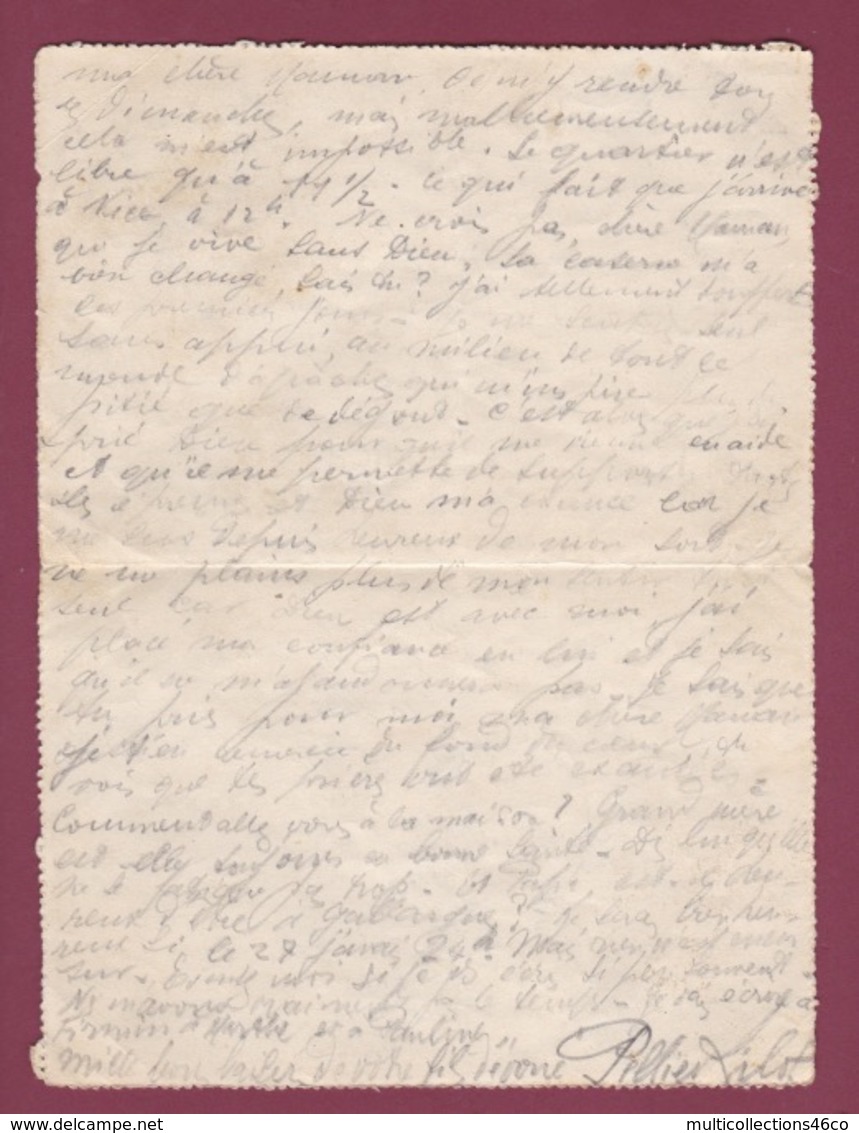 ma chère Maman, de m'y rendre tous
les Dimanches, mais malheureusement
cela m'est impossible. Le quartier n'est
libre qu'à 11 1/2 - ce qui fait que j'arrive
à Nice à 12h. Ne crois pas, chère Maman
que je vive sans Dieu, la caserne m'a
bien changé, sais tu? j'ai tellement souffert
les premiers jours - Je me sentais seul
sans appui, au milieu de tout ce
monde d'apaches qui m'inspire plus de
pitié que de dégout - C'est alors que j'ai
prié Dieu pour qu'il me vienne en aide
et qu'il me permette de supporter
les épreuves et Dieu m'a exaucé car je
me sens depuis heureux de mon sort - Je
ne me plains plus de mon
seul car Dieu est avec moi, j'ai
placé ma confiance en lui et je sais
qu'il ne m'abandonnera pas. Je sais que
tu pries pour moi ma chère Maman
je t'en remercie du fond du cœur, tu
vois que tes prières ont été exaucées
Comment allez vous à la maison? Grand mère
est elle toujours en bonne santé - Dis lui qu'elle
ne se fatigue pas trop - Et Papa est-il
à Gallargues? - Je serai très heu-
reux si le 27 j'avais 24h. Mais rien n'est encore
sur - Excuse moi si je écris si peu souvent -
Ns n'avons vraiment pas le temps - Je vais écrire à
Firmin à Marthe et à Pauline
Mille bons baisers de votre fils dévoué Pellier
multicollections46co
DELCAMPE.NET